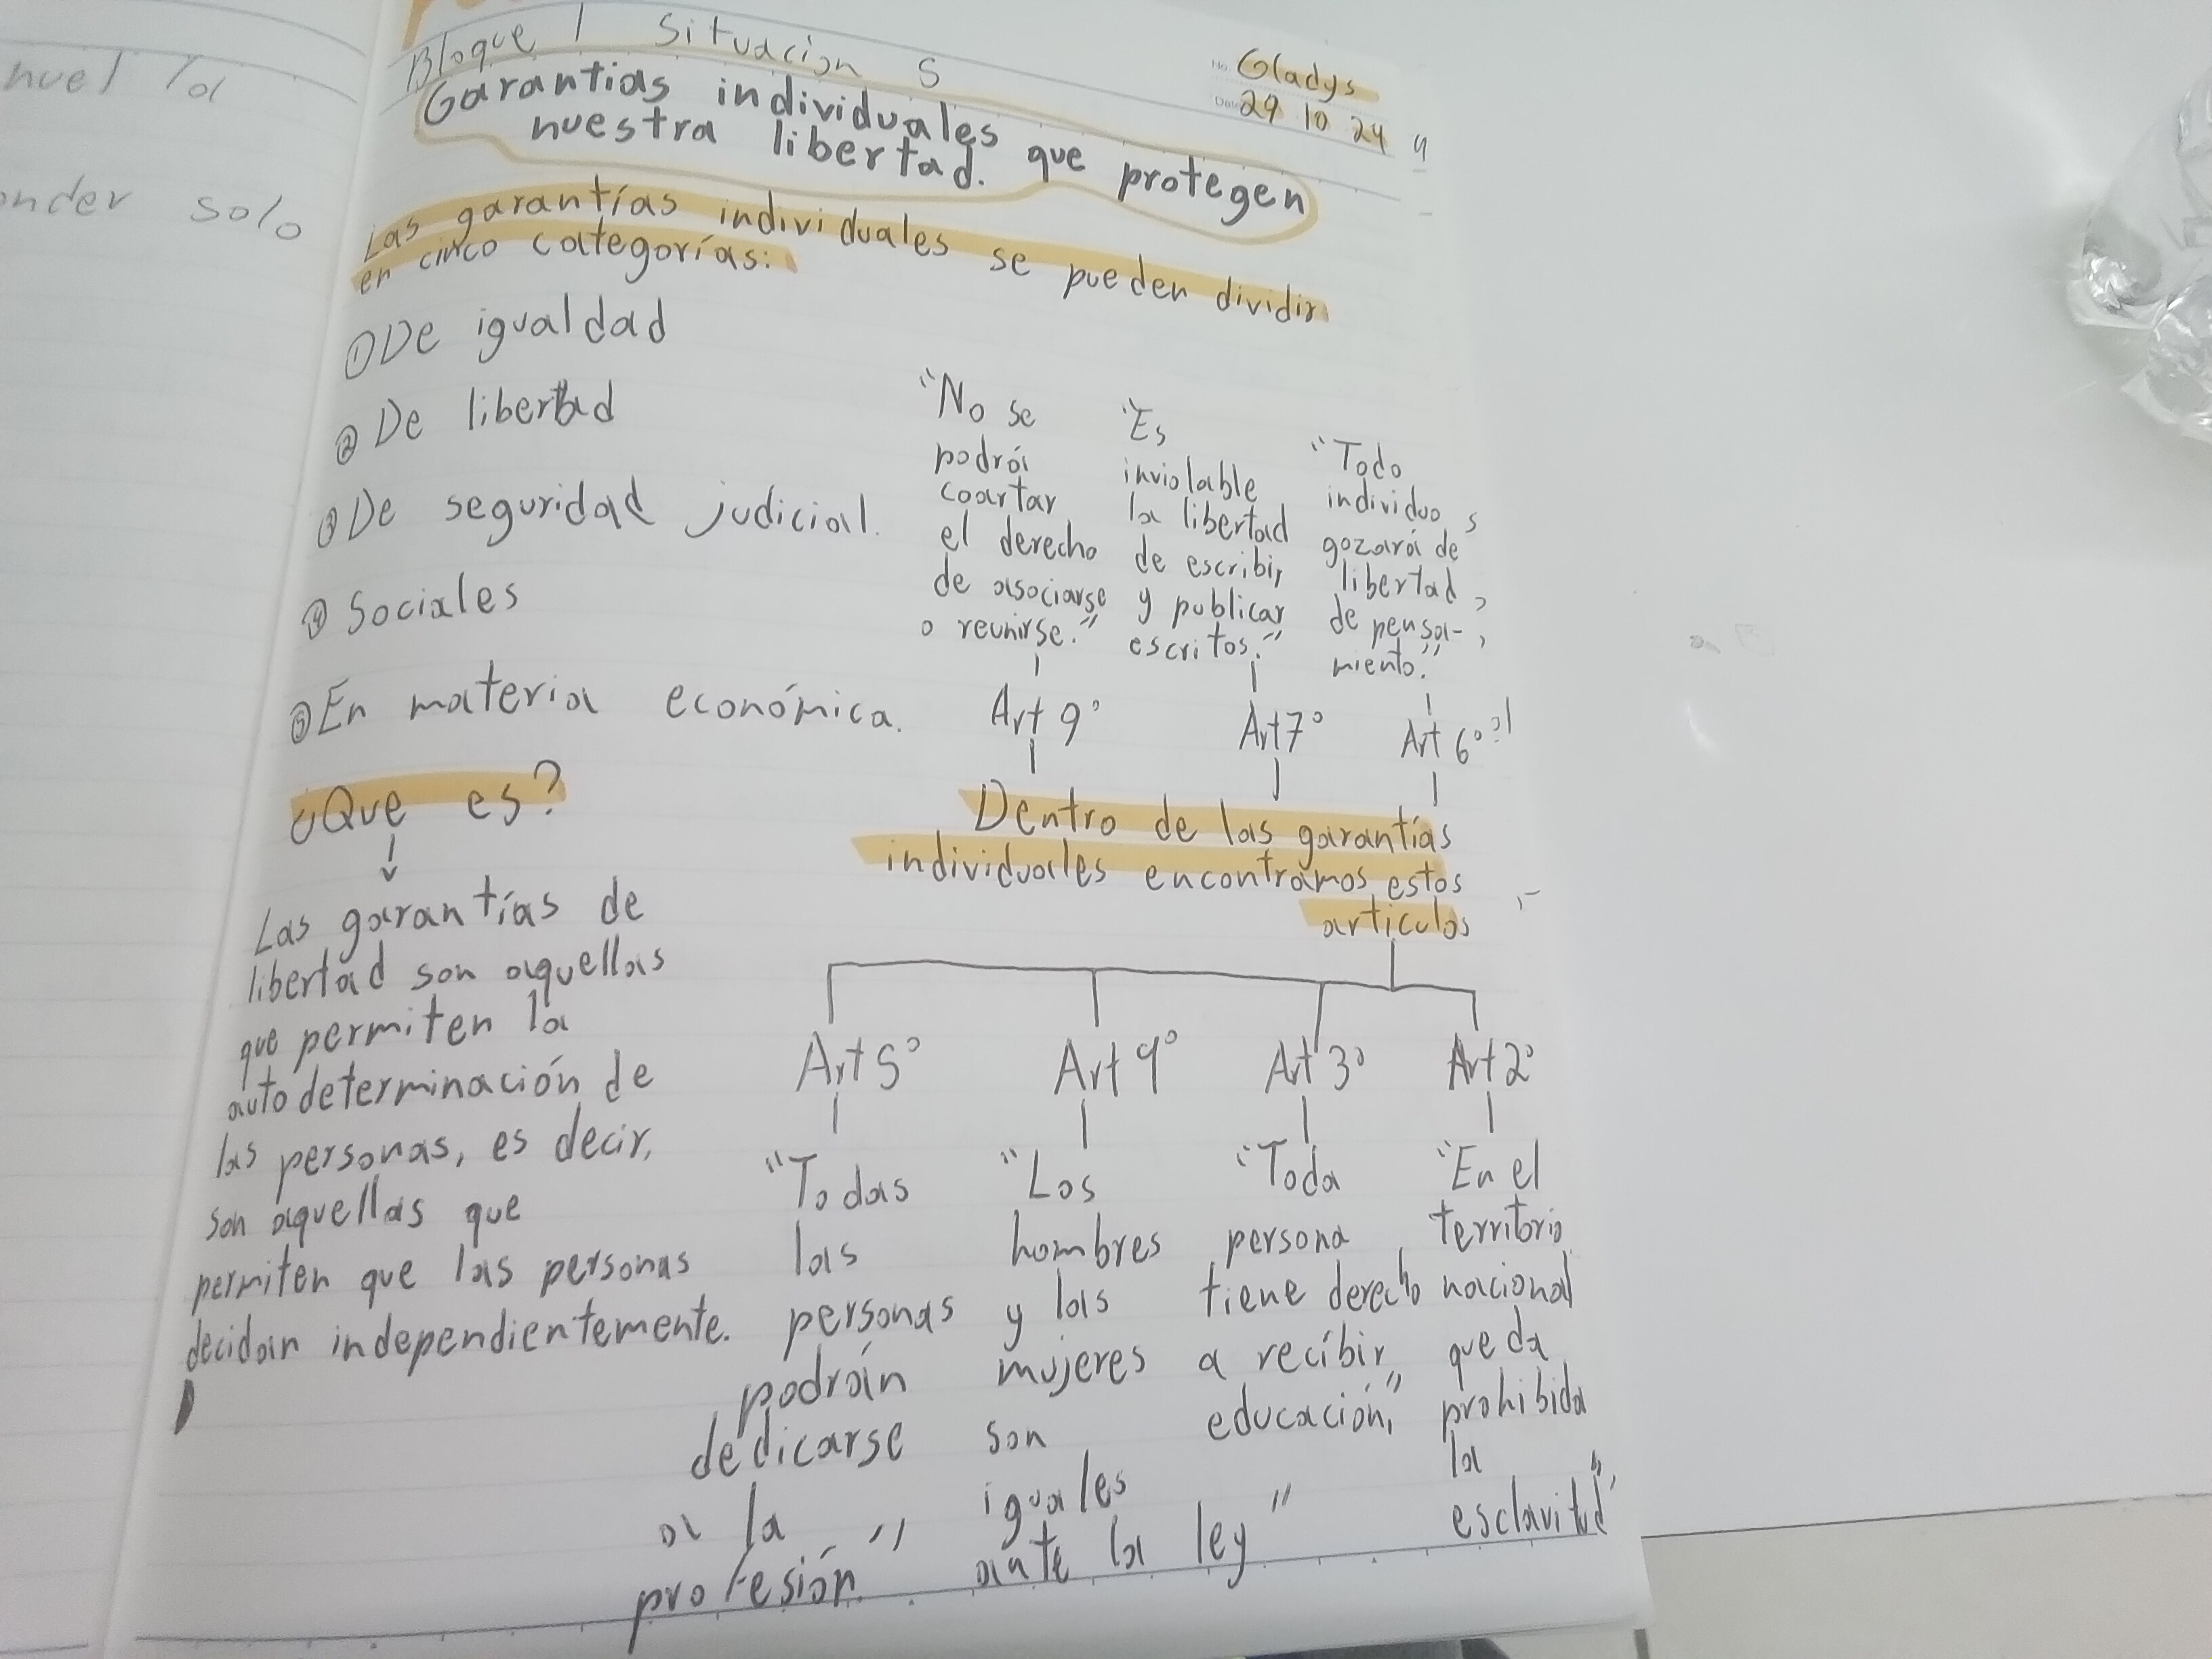 nuel la
onder solo
Bloque 1 Situacion 5
Gladys
29 10 24
Garantias individuales que protegen
nuestra libertad.
Las garantías individuales se pueden dividir
en cinco categorías:
① De igualdad
② De libertad
③ De seguridad judicial.
④ Sociales
⑤ En materia económica.
¿Que es?
Las garantías de
libertad son aquellas
que permiten la
autodeterminación de
las personas, es decir,
son aquellas que
permiten que las personas
decidan independientemente.
"No se
podrá
coartar
el derecho
de asociarse
o reunirse."
Art 9°
"Es
inviolable
la libertad
de escribir
y publicar
escritos."
Art 7°
"Todo
individuo
gozará de
libertad
de pensa-
miento."
Art 6°
Dentro de las garantías
individuales encontramos estos
articulos
Art 5°
"Todas
las
personas
podrán
dedicarse
a la
profesión"
Art 4°
"Los
hombres
y las
mujeres
son
iguales
ante la ley"
Art 3°
"Toda
persona
tiene derecho
a recibir
educación."
Art 2°
"En el
territorio
nacional
queda
prohibida
la
esclavitud"